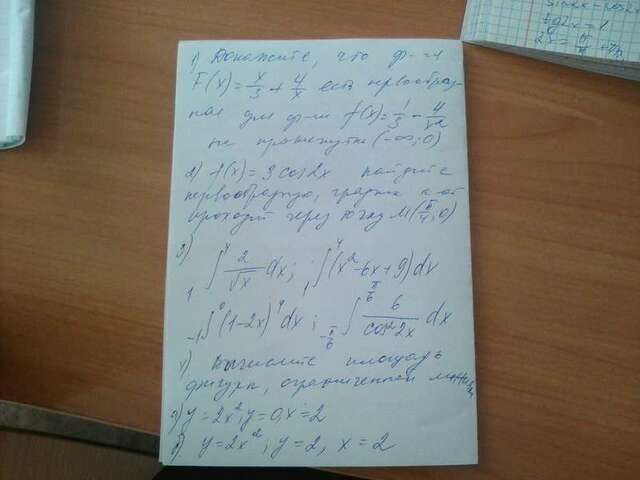 sin2x - cos2x
tg2x = 1
1) Докажите, что ф-ия
F(x) = x/3 + 4/x есть первообраз-
ная для ф-ии f(x) = 1/3 - 4/x²
на промежутке (-∞; 0)
2) f(x) = 3 cos2x найдите
первообразную, график к-ой
проходит через точку M(π/4; 0)
3)
₁∫⁴ 2/√x dx; ₁∫⁴ (x² - 6x + 9) dx
₋₁∫⁰ (1-2x)⁴ dx; ∫ 6/cos²2x dx
Вычислите площадь
фигуры, ограниченной линиями
а) y = 2x², y = 0, x = 2
б) y = 2x²; y = 2, x = 2